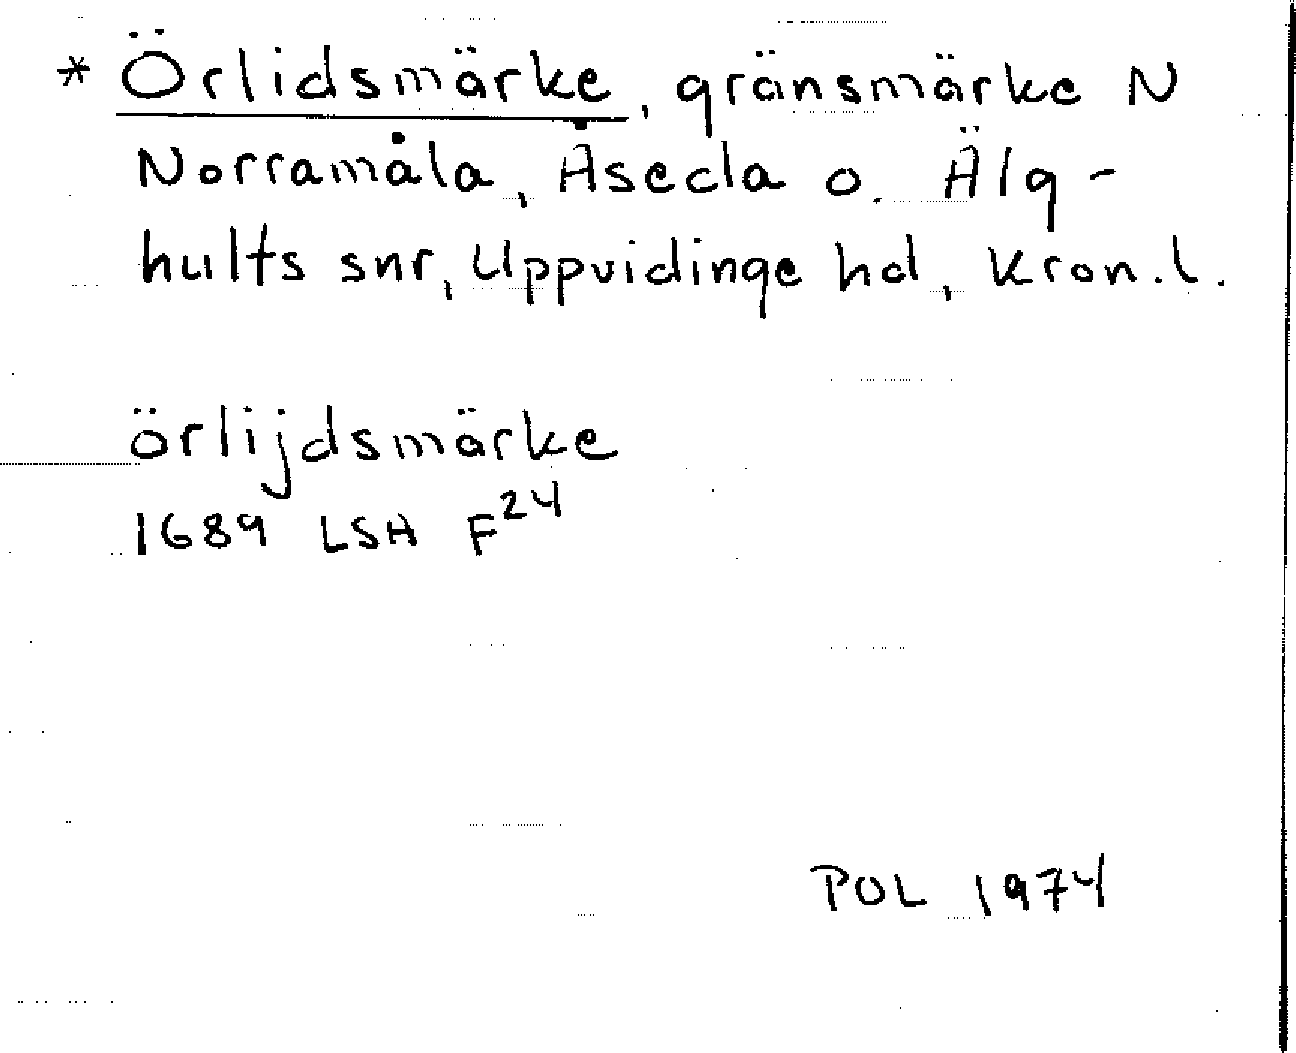 * Örlidsmärke, gränsmärke N
Norramåla, Åseda o. Älg-
hults snr, Uppvidinge hd, Kron.l.
örlijdsmärke
1689 LSH F24
POL 1974